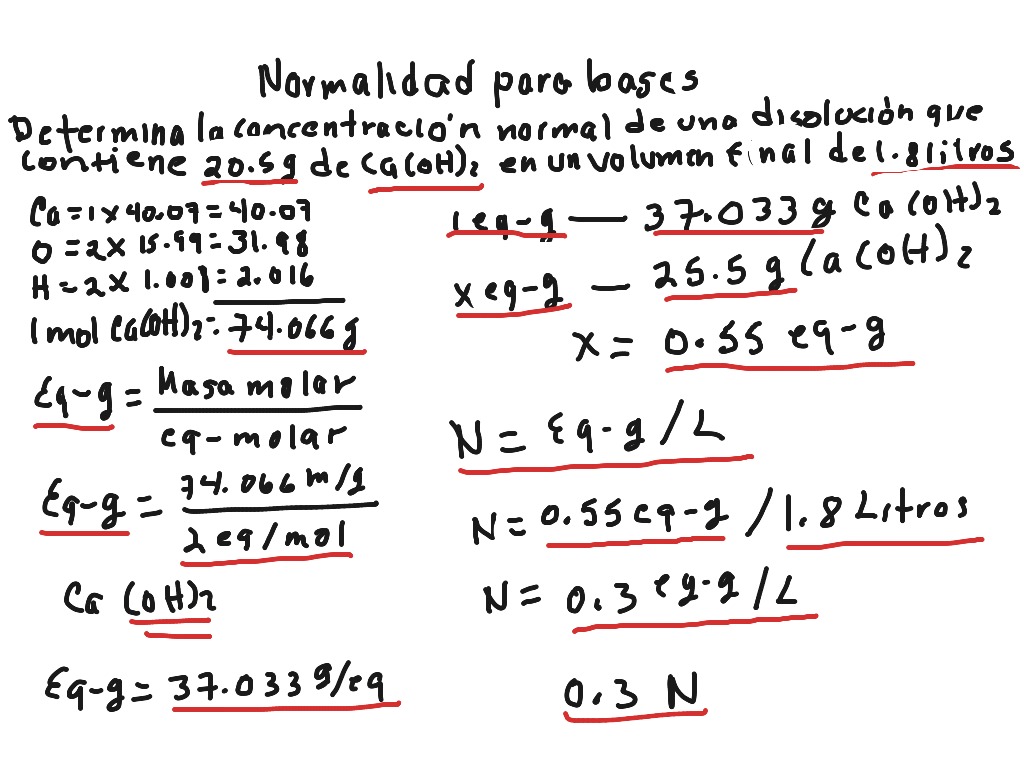 Normalidad para bases
Determina la concentración normal de una disolución que
contiene 20.5g de Ca(OH)₂ en un volumen final de 1.8 litros
Ca = 1 x 40.07 = 40.07
O = 2x 15.99 = 31.98
H = 2x 1.008 = 2.016
1 mol Ca(OH)₂ = 74.066 g
Eq-g = Masa molar
eq-molar
Eq-g = 74.066 m/g
2 eq/mol
Ca (OH)₂
Eq-g = 37.033 g/eq
1 eq-g — 37.033 g Ca(OH)₂
x eq-g — 25.5 g Ca(OH)₂
x = 0.55 eq-g
N = Eq-g/L
N = 0.55 eq-g / 1.8 Litros
N = 0.3 eq-g/L
0.3 N